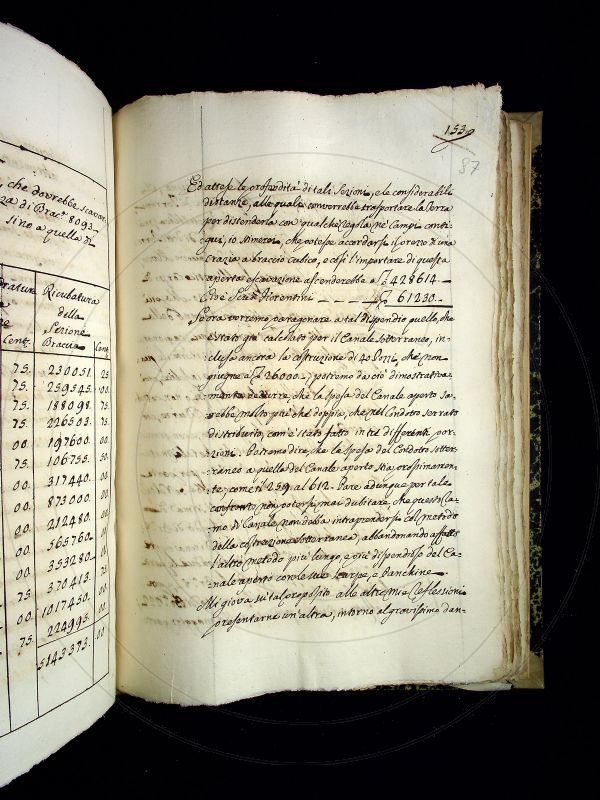 , che dovrebbe scavar-
za di Brac.ᵃ 8093.
sino a quella di
Ricubatura
della
Sezione
Cent. Braccia Cent.
75. 230051. 25
75. 259545. 00.
75. 188098. 75
75. 226503. 75
00. 197600. 00
75. 106755. 50
00. 317440. 00
00. 873000. 00
00. 212480. 00
00. 565760. 00
00. 353280. 00
75. 370413. 75
00. 1017450. 00
75. 224995. 00
5143373. 00
153
87
Ed attese le profondità di tali Sezioni, e le considerabili
distanze, alle quali converrebbe trasportare la Terra
per distenderla con qualche regola ne' Campi conti-
gui, io stimerei, che potesse accordarsi il prezzo di una
crazia a braccio cubico, e così l'importare di questa
aperta escavazione ascenderebbe a 428614 –
Cioè Scudi Fiorentini – – – – 61230. –
Se ora vorremo paragonare a tal dispendio quello, che
è stato già calcolato per il Canale sotterraneo, in-
clusa ancora la costruzione di 40 Pozzi, che non
giugne a 26000. – , potremo da ciò dimostrativa-
mente dedurre, che la spesa del Canale aperto sa-
rebbe molto più che doppia, che nel Condotto serrato
distribuito, com'è stato fatto in tre differenti por-
zioni. Potremo dire, che la spesa del Condotto sotter-
raneo a quella del Canale aperto stia prossimamen-
te, come il 259. al 612. Pare adunque per tale
confronto non potersi mai dubitare, che questo Ra-
mo di Canale non deba intraprendersi col metodo
della costruzione sotterranea, abbandonando affatto
l'altro metodo più lungo, e più dispendioso del Ca-
nale aperto con le sue scarpe, e banchine.
Mi giova su tal proposito alle altre mie riflessioni
presentarne un'altra, intorno al gravissimo dan-